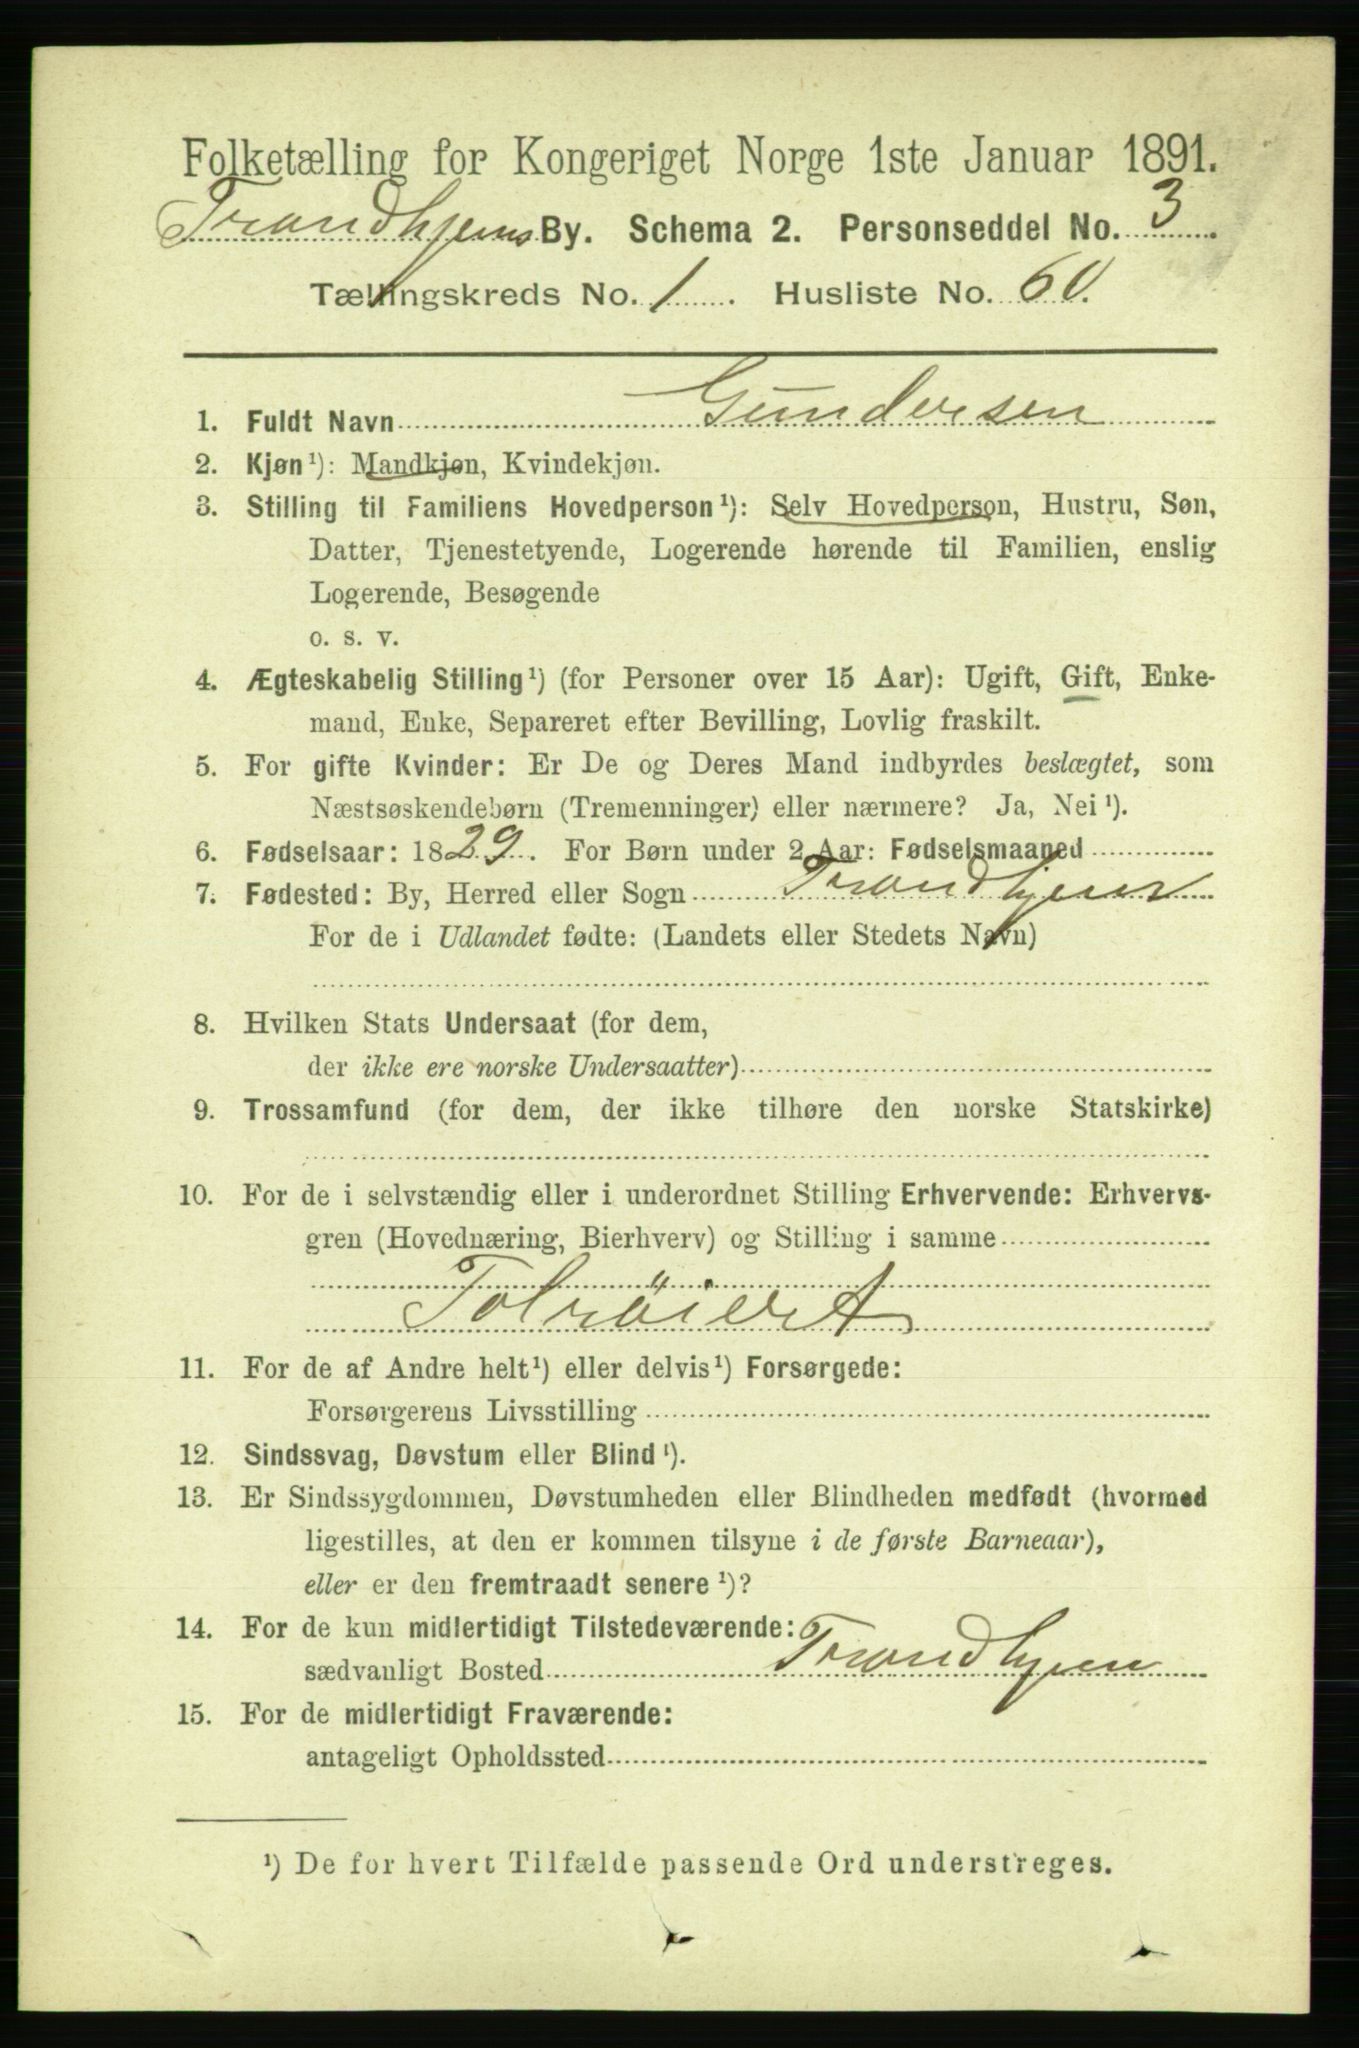 Folketælling for Kongeriget Norge 1ste Januar 1891.
Trondhjems By. Schema 2. Personseddel No. 3.
Tællingskreds No. 1. Husliste No. 60.
1. Fuldt Navn Gundersen
2. Kjøn¹): Mandkjøn, Kvindekjøn.
3. Stilling til Familiens Hovedperson¹): Selv Hovedperson, Hustru, Søn,
Datter, Tjenestetyende, Logerende hørende til Familien, enslig
Logerende, Besøgende
o. s. v.
4. Ægteskabelig Stilling¹) (for Personer over 15 Aar): Ugift, Gift, Enke-
mand, Enke, Separeret efter Bevilling, Lovlig fraskilt.
5. For gifte Kvinder: Er De og Deres Mand indbyrdes beslægtet, som
Næstsøskendebørn (Tremenninger) eller nærmere? Ja, Nei¹).
6. Fødselsaar: 1829. For Børn under 2 Aar: Fødselsmaaned
7. Fødested: By, Herred eller Sogn Trondhjem
For de i Udlandet fødte: (Landets eller Stedets Navn)
8. Hvilken Stats Undersaat (for dem,
der ikke ere norske Undersaatter)
9. Trossamfund (for dem, der ikke tilhøre den norske Statskirke)
10. For de i selvstændig eller i underordnet Stilling Erhvervende: Erhvervs-
gren (Hovednæring, Bierhverv) og Stilling i samme
11. For de af Andre helt¹) eller delvis¹) Forsørgede:
Forsørgerens Livsstilling
12. Sindssvag, Døvstum eller Blind¹).
13. Er Sindssygdommen, Døvstumheden eller Blindheden medfødt (hvormed
ligestilles, at den er kommen tilsyne i de første Barneaar),
eller er den fremtraadt senere¹)?
14. For de kun midlertidigt Tilstedeværende:
sædvanligt Bosted Trondhjem
15. For de midlertidigt Fraværende:
antageligt Opholdssted
¹) De for hvert Tilfælde passende Ord understreges.